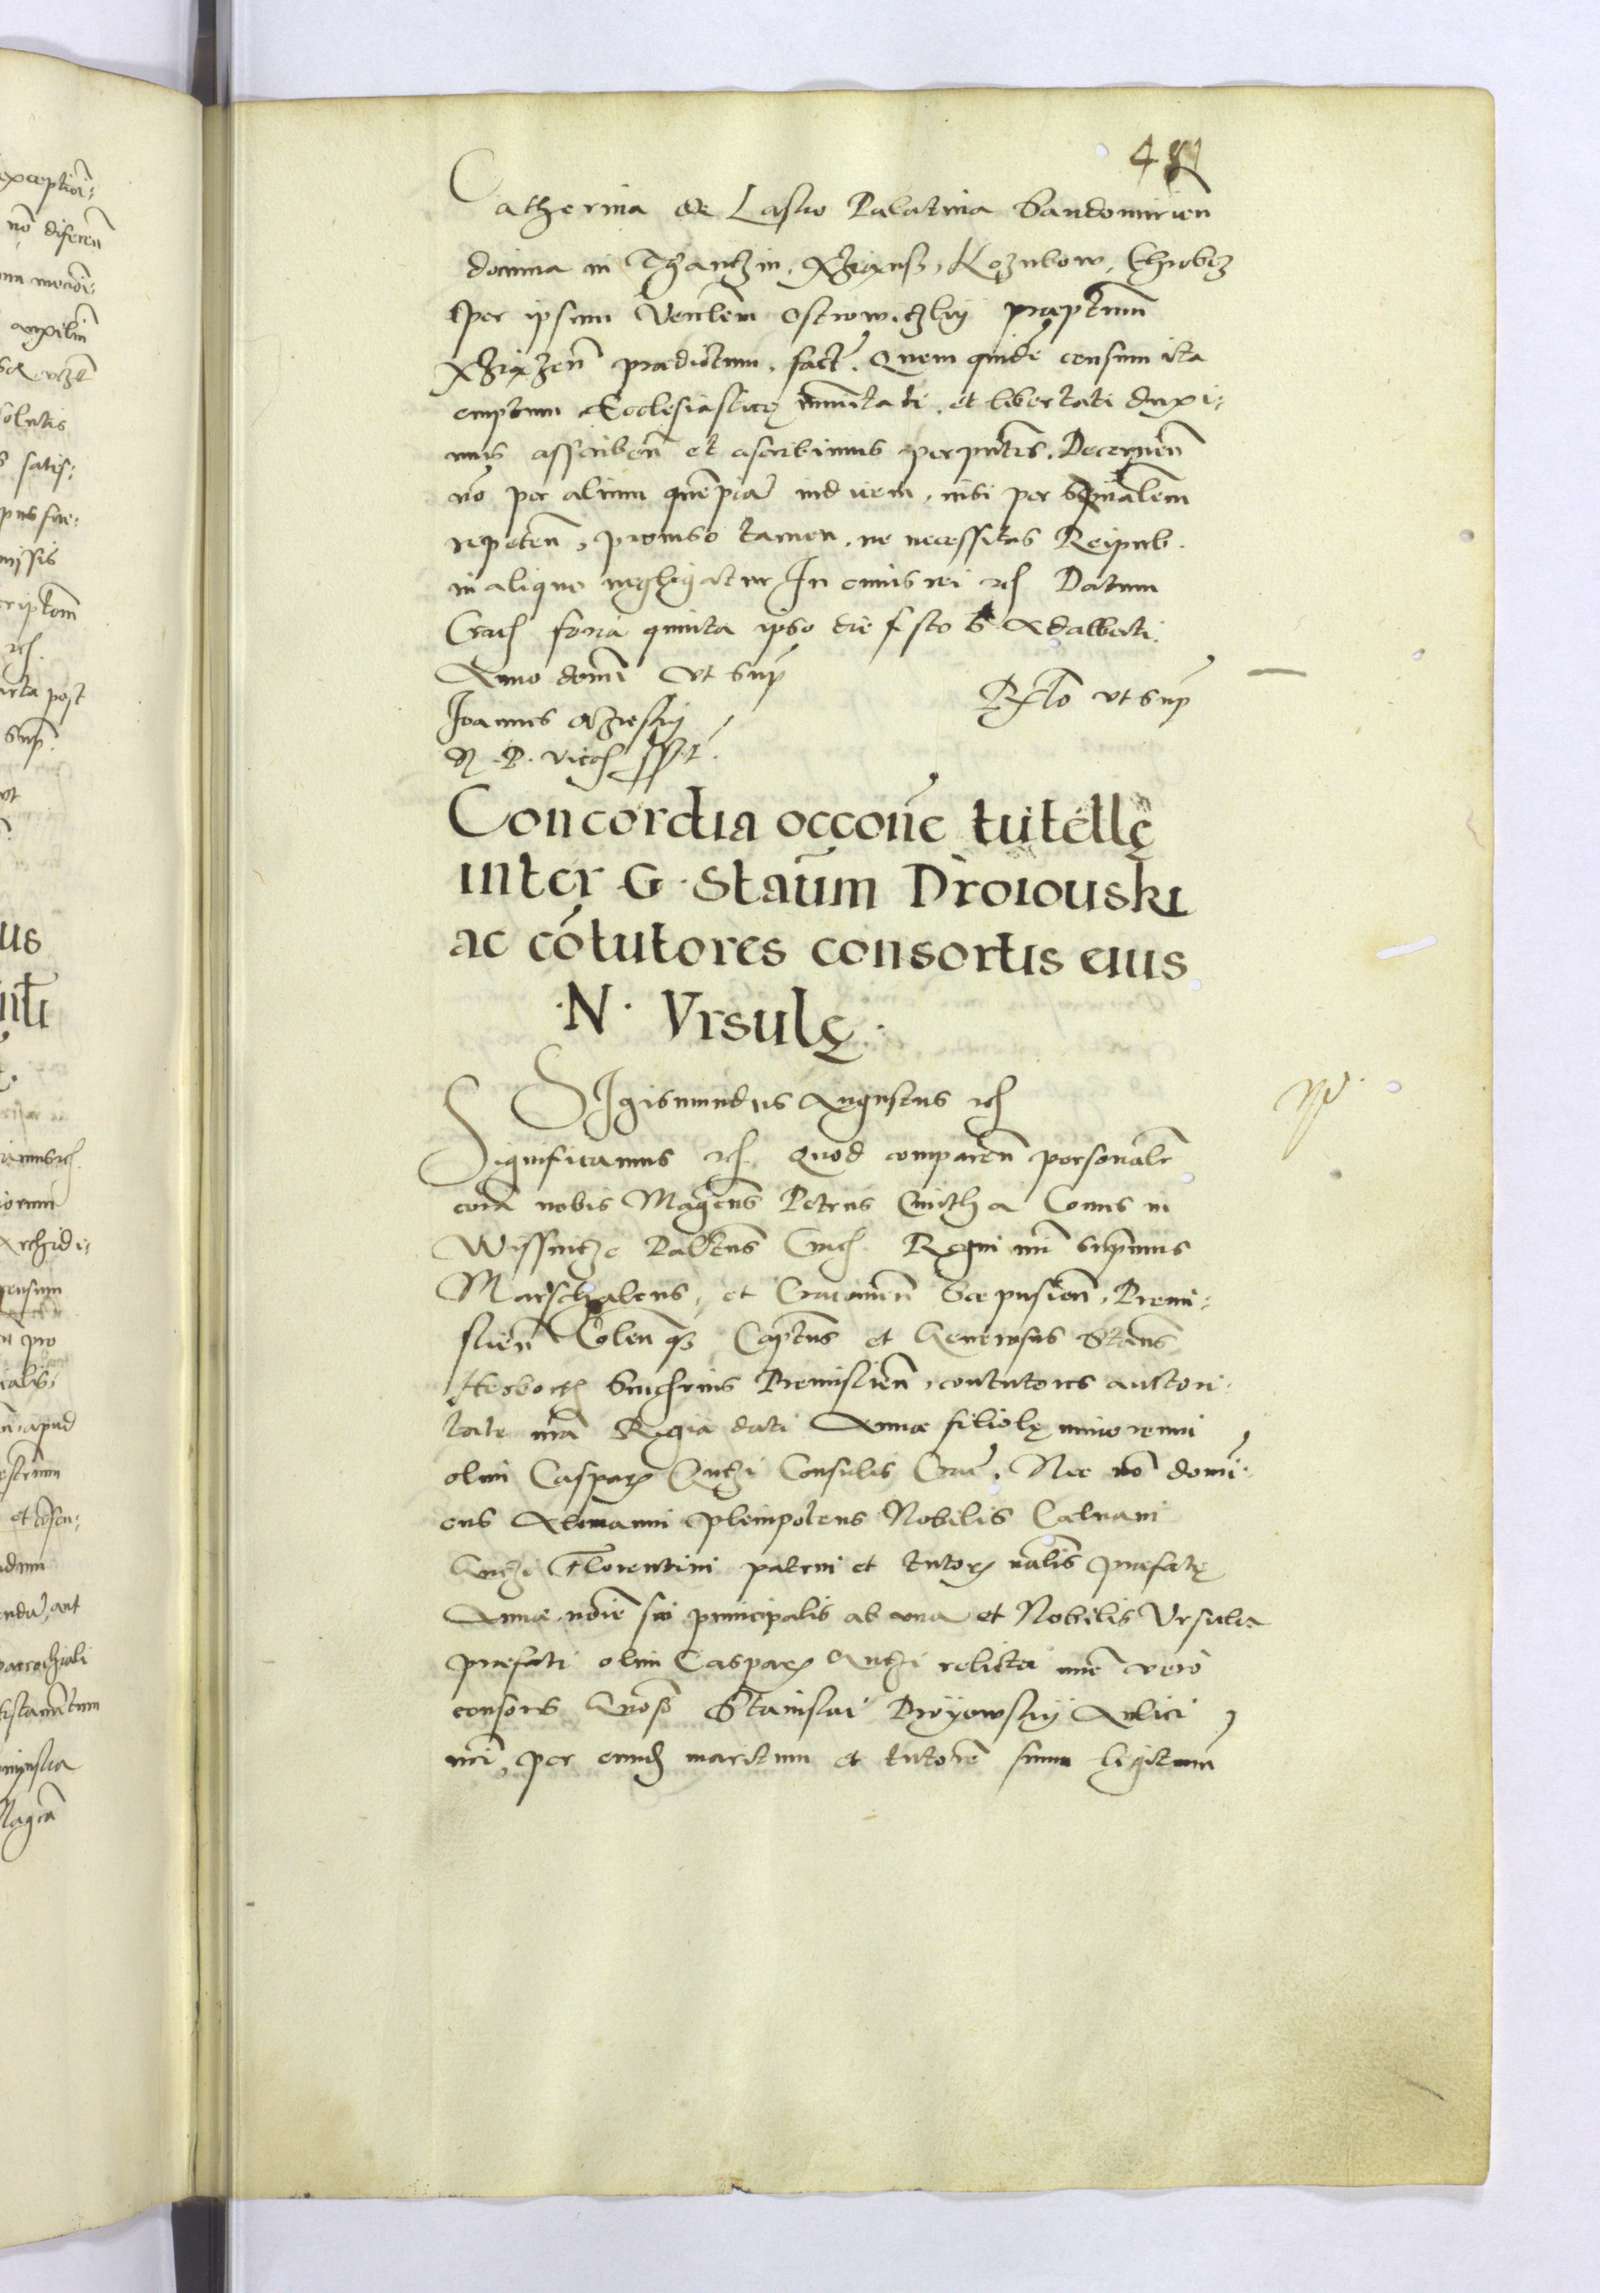 481
Catherina de Lasko Palatina Sandomirien
domina in Thantzin, Xziaznß, Kozubow, Chrobrz
per ipsum Venlem Ostrowitzkij præptum
Xziazen prædictum. fact. Quem quidē censum ita
emptum Ecclesiasticę immunitati, et libertati duxi:
mus asscriben et ascribimus per pntes. Decernen
nō per alium quēpiā iudicem, nisi per spualem
repeten, proviso tamen, ne necessitas Reipub.
in aliquo negligatur In cuius rei rc Datum
Crac feria quinta ipso die festo S Adalberti.
Anno domi vt sup
Rlō vt sup
Joannes
R. P. vicec sspt.
Concordia occone tutellę
inter G. Staūm Droiouski
ac cōtutores consortis eius
.N. Vrsulę.
SIgismundus Augustus rc
Significamus rc. Quod comparen personalr
corā nobis Magcus Petrus Cmitha Comes in
Wissnicze Paltnus Crac. Regni nri supmus
Marschalcus, et Cracovien Scepusien, Premi:
slien Colen qz Captus et Generosus Staus
Herborth Succamerius Premislien, contutores auctori:
tate nra Regia dati Annæ filiolę minorenni
olim Caspar Gutzi Consulis Crac. Nec nō domi:
cus Alamanni plenipotens Nobilis Caluani
Gutzi Florentini patrui et tutor nalis præfatę
Annæ nōie sui principalis ab una et Nobilis Vrsula
præfati olim Caspar Gutzi relicta nūc vero
consors Gnosi Stanislai Droyowskij Aulici
nri, per eund maritum et tutorē suum legitimū